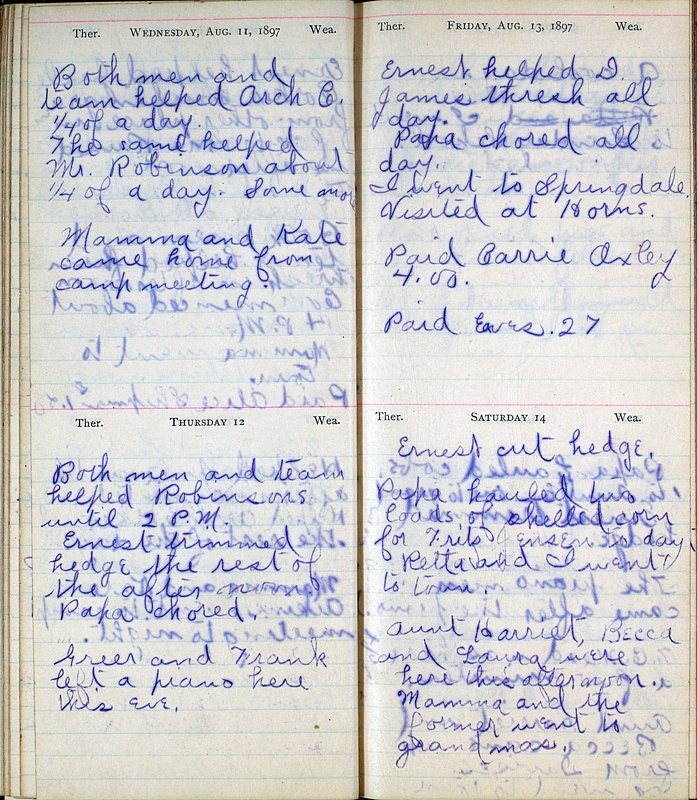 Ther. WEDNESDAY, AUG. 11, 1897 Wea.
Both men and
team helped Arch C.
1/4 of a day.
The same helped
Mr. Robinson about
1/4 of a day. Some more
Mamma and Kate
came home from
camp meeting.
Ther. THURSDAY 12 Wea.
Both men and team
helped Robinsons
until 2 P.M.
Ernest trimmed
hedge the rest of
the after noon.
Papa chored.
Greer and Frank
left a piano here
this eve.
Ther. FRIDAY, AUG. 13, 1897 Wea.
Ernest helped D.
James thresh all
day.
Papa chored all
day.
I went to Springdale.
Visited at Horns.
Paid Carrie Oxley
4.00.
Paid Eaves .27
Ther. SATURDAY 14 Wea.
Ernest cut hedge.
Papa hauled two
loads of shelled corn
for Frits Jensen to day.
Retta and I went
to town.
Aunt Harriet, Becca
and Laura were
here this afternoon.
Mamma and the
former went to
grandmas.